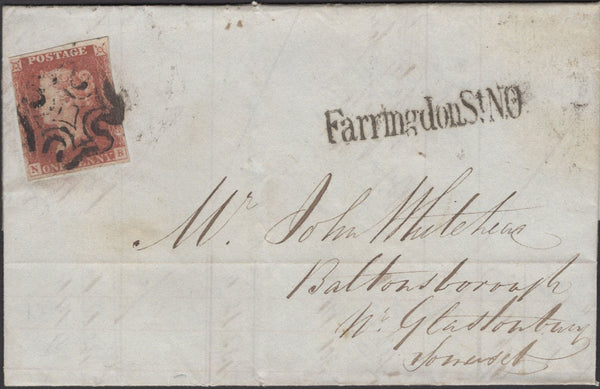 POSTAGE
N ONE PENNY B
Farringdon St N.O
Mr. John Whitehead
Baltonsborough
Nr. Glastonbury
Somerset